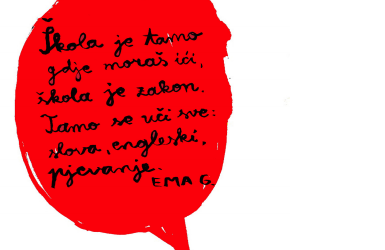 Škola je tamo
gdje moraš ići,
škola je zakon.
Tamo se uči sve:
slova, engleski,
pjevanje.
EMA G.